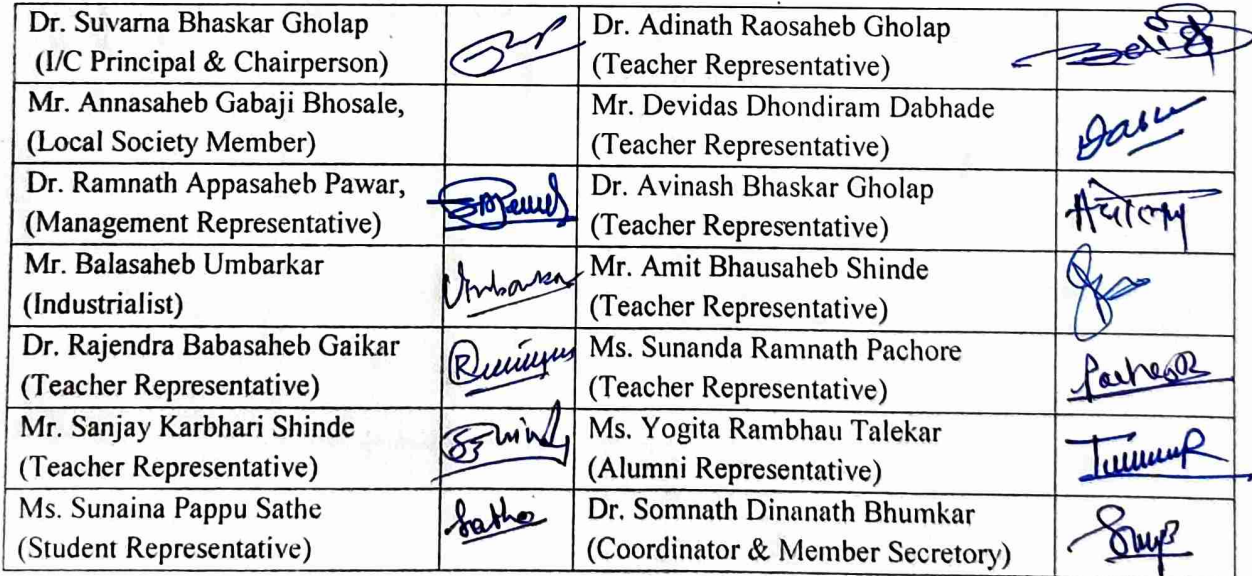 Dr. Suvarna Bhaskar Gholap
(I/C Principal & Chairperson)
Dr. Adinath Raosaheb Gholap
(Teacher Representative)
Mr. Annasaheb Gabaji Bhosale,
(Local Society Member)
Mr. Devidas Dhondiram Dabhade
(Teacher Representative)
Dr. Ramnath Appasaheb Pawar,
(Management Representative)
Dr. Avinash Bhaskar Gholap
(Teacher Representative)
Mr. Balasaheb Umbarkar
(Industrialist)
Umbarkar
Mr. Amit Bhausaheb Shinde
(Teacher Representative)
Dr. Rajendra Babasaheb Gaikar
(Teacher Representative)
Ms. Sunanda Ramnath Pachore
(Teacher Representative)
Mr. Sanjay Karbhari Shinde
(Teacher Representative)
Ms. Yogita Rambhau Talekar
(Alumni Representative)
Ms. Sunaina Pappu Sathe
(Student Representative)
Sathe
Dr. Somnath Dinanath Bhumkar
(Coordinator & Member Secretory)